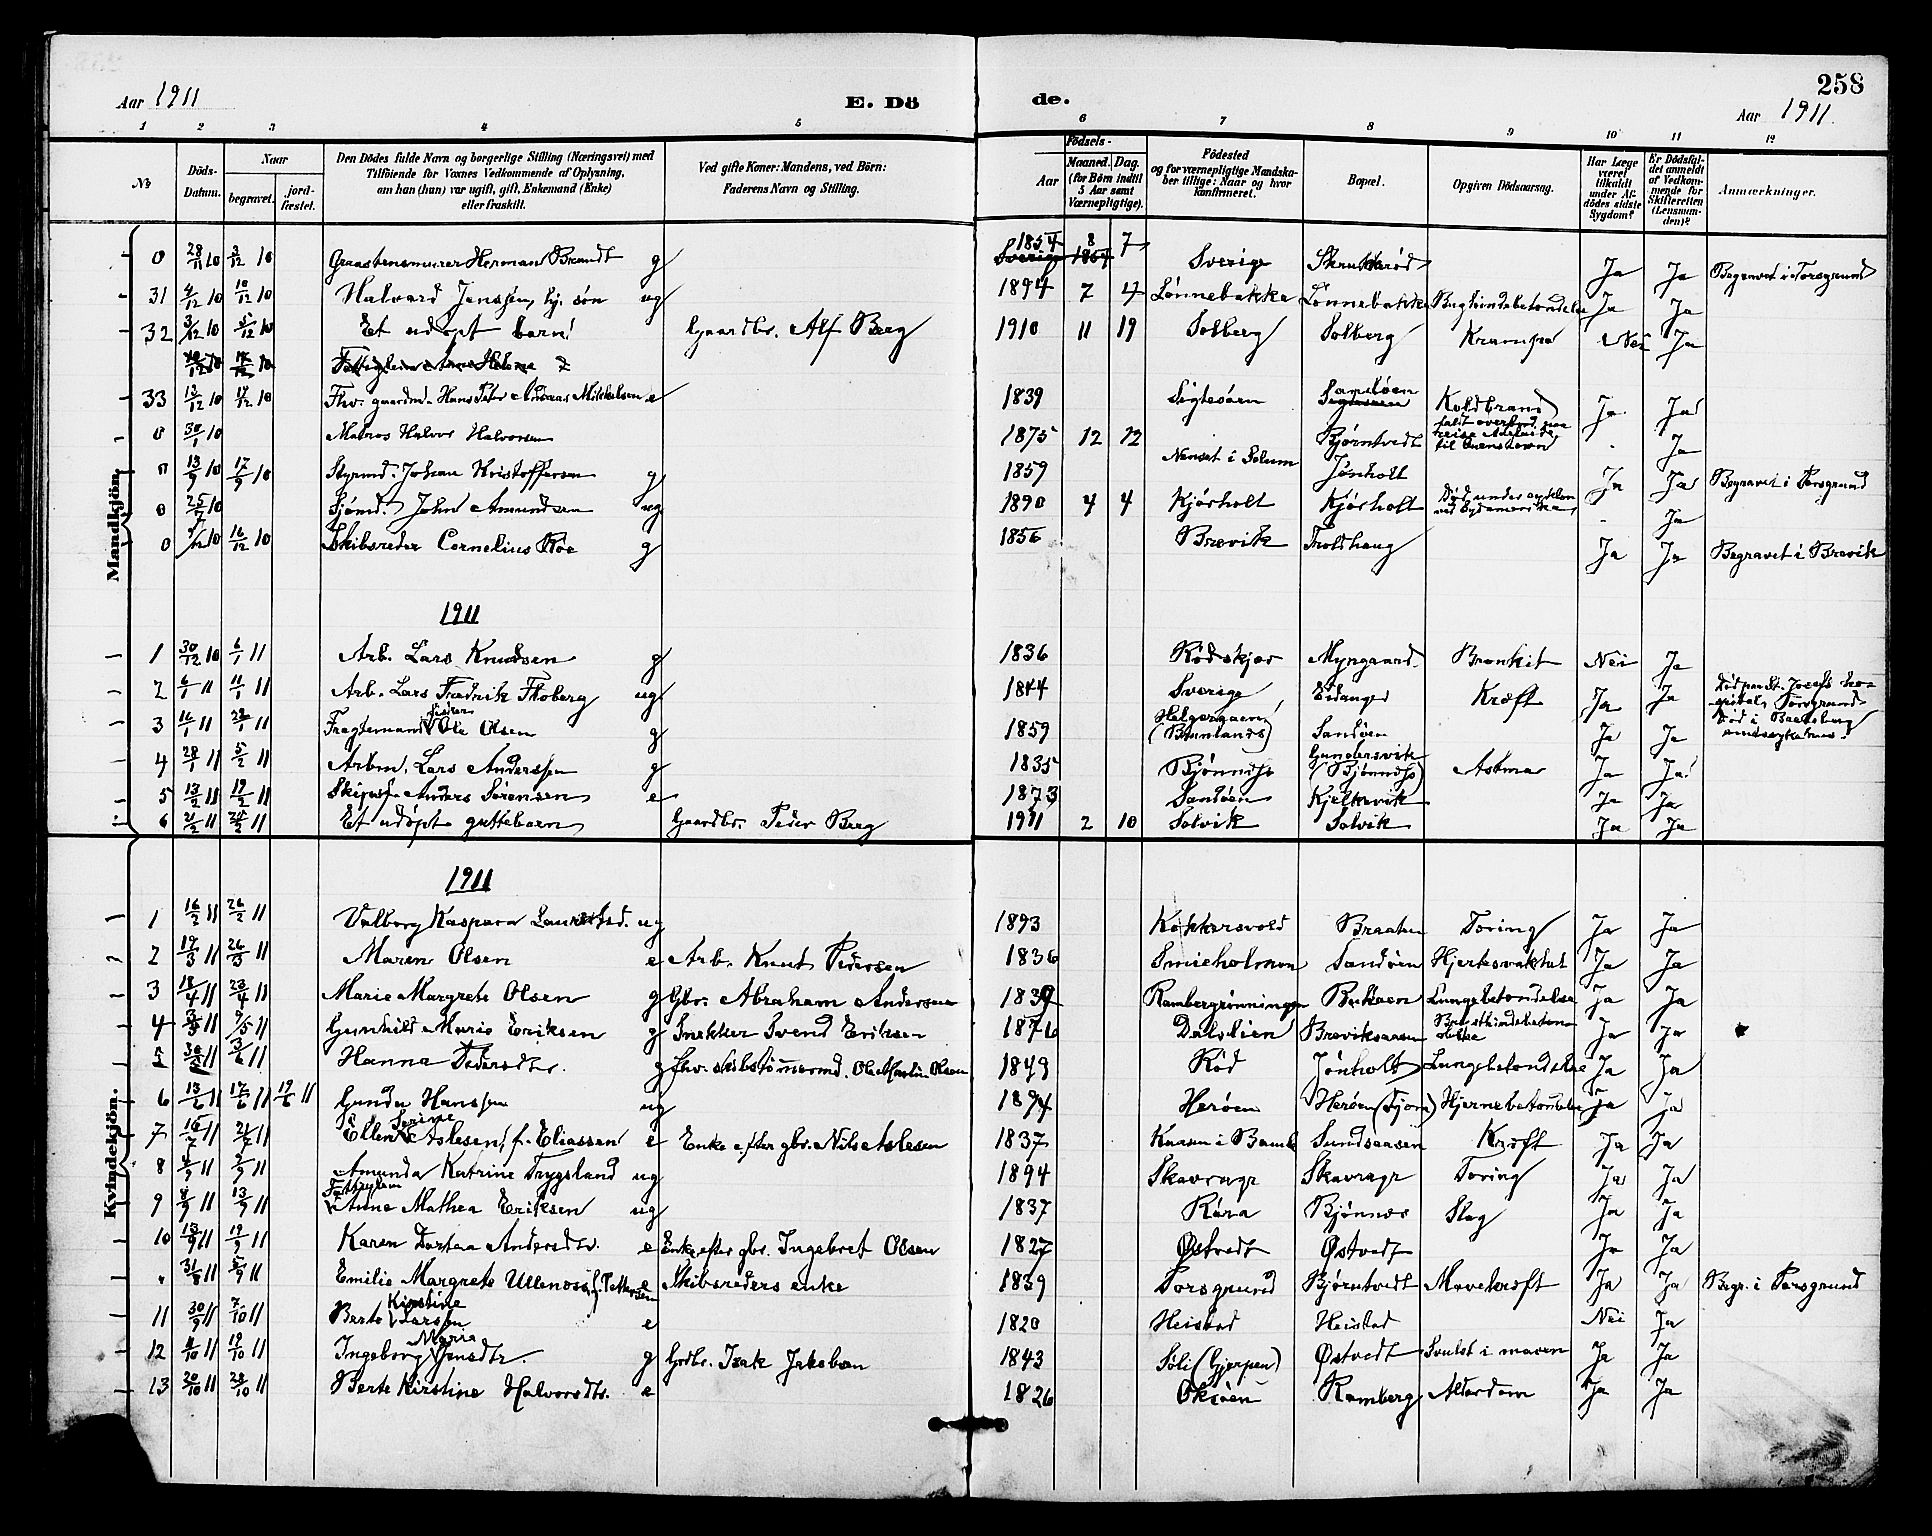 258
Aar 1911 E. Dö
de. Aar 1911
1 2 3 4 5
6 7 8 9 10 11 12
No
Döds-Datum.
Naar
begravet.
jord-fæstet.
Den Dödes fulde Navn og borgerlige Stilling (Næringsvei) med
Tilföiende for Voxnes Vedkommende af Oplysning,
om han (hun) var ugift, gift, Enkemand (Enke)
eller fraskilt.
Ved gifte Koner: Mandens, ved Börn:
Faderens Navn og Stilling.
Födsels-
Aar
Maaned. Dag.
(for Börn indtil
5 Aar samt
Værnepligtige).
Födested
og for værnepligtige Mandska-
ber tillige: Naar og hvor
konfirmeret.
Bopæl.
Opgiven Dödsaarsag.
Har Læge
været
tilkaldt
under Af-
dödes sidste
Sygdom?
Er Dödsfal-
det anmeldt
af Vedkom-
mende for
Skifteretten
(Lensman-
den)?
Anmærkninger.
Mandkjön.
0 28/11 10 3/12 10 Graastensmurer Herman Brandt g 1854 8 7 Sverige Ja Ja Begravet i Porsgrund
31 4/12 10 10/12 10 Halvard Jenssen, hj. søn ug 1894 7 4 Lønnebakke Lønnebakke Bughindebetændelse Ja Ja
32 3/12 10 5/12 10 Et udøpt barn Gaardbr. Alf Berg 1910 11 19 Solberg Solberg Krampe Nei Ja
33 13/12 10 17/12 10 Fhv. gaardm. Hans Peter Andreas Mikkelsen e 1839 Sigtesøen Sandøen Koldbrand Ja Ja
0 30/1 10 Matros Halvor Halvorsen 1875 12 12 Bjørntvedt faldt overbord paa reise Adelaide til Queenstown - Ja
0 13/9 10 17/9 10 Styrmd. Johan Kristoffersen g 1859 Nenset i Solum Jønholt Ja Ja Begravet i Porsgrund
0 25/7 10 Sjømd. John Amundsen ug 1890 4 4 Kjørholt Kjørholt Død under ved Sydamerika - Ja
0 /12 10 16/12 10 Skibsreder Cornelius Roe g 1856 Brevik Troldhaug Ja Ja Begravet i Brevik
1911
1 30/12 10 6/1 11 Arb. Lars Knudsen g 1836 Rødskjær Myngaard Bronkit Nei Ja
2 6/1 11 11/1 11 Arb. Lars Fredrik Floberg ug 1844 Sverige Eidanger Kræft Ja Ja Død paa St. Josefs hospital, Porsgrund
3 16/1 11 28/1 11 Fragtemand Peder Ole Olsen g 1859 Helgeroaen (Brunlanes) Sandøen Ja Ja Død i
4 28/1 11 5/2 11 Arbm. Lars Anderssen g 1835 Bjønnæs Gunnarsvik (Bjønnæs) Astma Ja Ja
5 13/2 11 19/2 11 Skipsf. Anders Sørensen e 1873 Sandøen Kjelkevik Ja Ja
6 21/2 11 24/2 11 Et udøpt guttebarn Gaardbr. Peder Berg 1911 2 10 Solvik Solvik Ja Ja
Kvindekjön.
1911
1 16/2 11 26/2 11 Valborg Kaspara ug 1893 Kokkersvold Braaten Tæring Ja Ja
2 19/3 11 26/3 11 Maren Olsen e Arb. Knut Pedersen 1836 Smieholmen Sandøen Hjertesvakhet Ja Ja
3 18/4 11 23/4 11 Marie Margrete Olsen g Gbr. Abraham Andersen 1839 Rambergrønningen Bukaen Lungebetændelse Ja Ja
4 3/5 11 9/5 11 Gunhild Marie Eriksen g Snekker Svend Eriksen 1876 Dalslien Breviksaasen Brysthindebetændelse Ja Ja
5 11 11 Hanna Pedersdtr. g fhv. skibstømmermd. Ole Martin Olsen 1849 Rød Jønholt Lungebetændelse Ja Ja
6 13/6 11 17/6 11 19/6 11 Gunda Hanssen ug 1894 Herøen Herøen (Fjære) Hjernebetændelse Ja Ja
7 16/7 11 21/7 11 Ellen Serine Aslesen, f. Eliassen e Enke efter gbr. Nils Aslesen 1837 Kaasen i Bamle Sundsaasen Kræft Ja Ja
8 4/9 11 9/9 11 Amunda Katrine Trygsland ug 1894 Skavrager Skavrager Tæring Ja Ja
9 8/9 11 13/9 11 Fattiglem Anne Mathea Eriksen ug 1837 Røra Bjønnæs Slag Ja Ja
10 13/9 11 19/9 11 Karen Dortea Andersdtr. e Enke efter gbr. Ingebret Olsen 1827 Østvedt Østvedt Ja Ja
" 31/8 11 5/9 11 Emilie Margrete Ullenæss, f. Pettersen e Skibsreders enke 1839 Porsgrund Bjørntvedt Mavekræft Ja Ja Begr. i Porsgrund
11 30/9 11 7/10 11 Berte Kirstine Larsen e 1820 Heistad Heistad Nei Ja
12 8/10 11 19/10 11 Ingeborg Maria Jensdtr. g Grdbr. Isak Jakobsen 1843 Søli (Gjerpen) Østvedt Svulst i maven Ja Ja
13 20/10 11 28/10 11 Berte Kirstine Halvorsdtr. e 1826 Oksøen Ramberg Alderdom Ja Ja